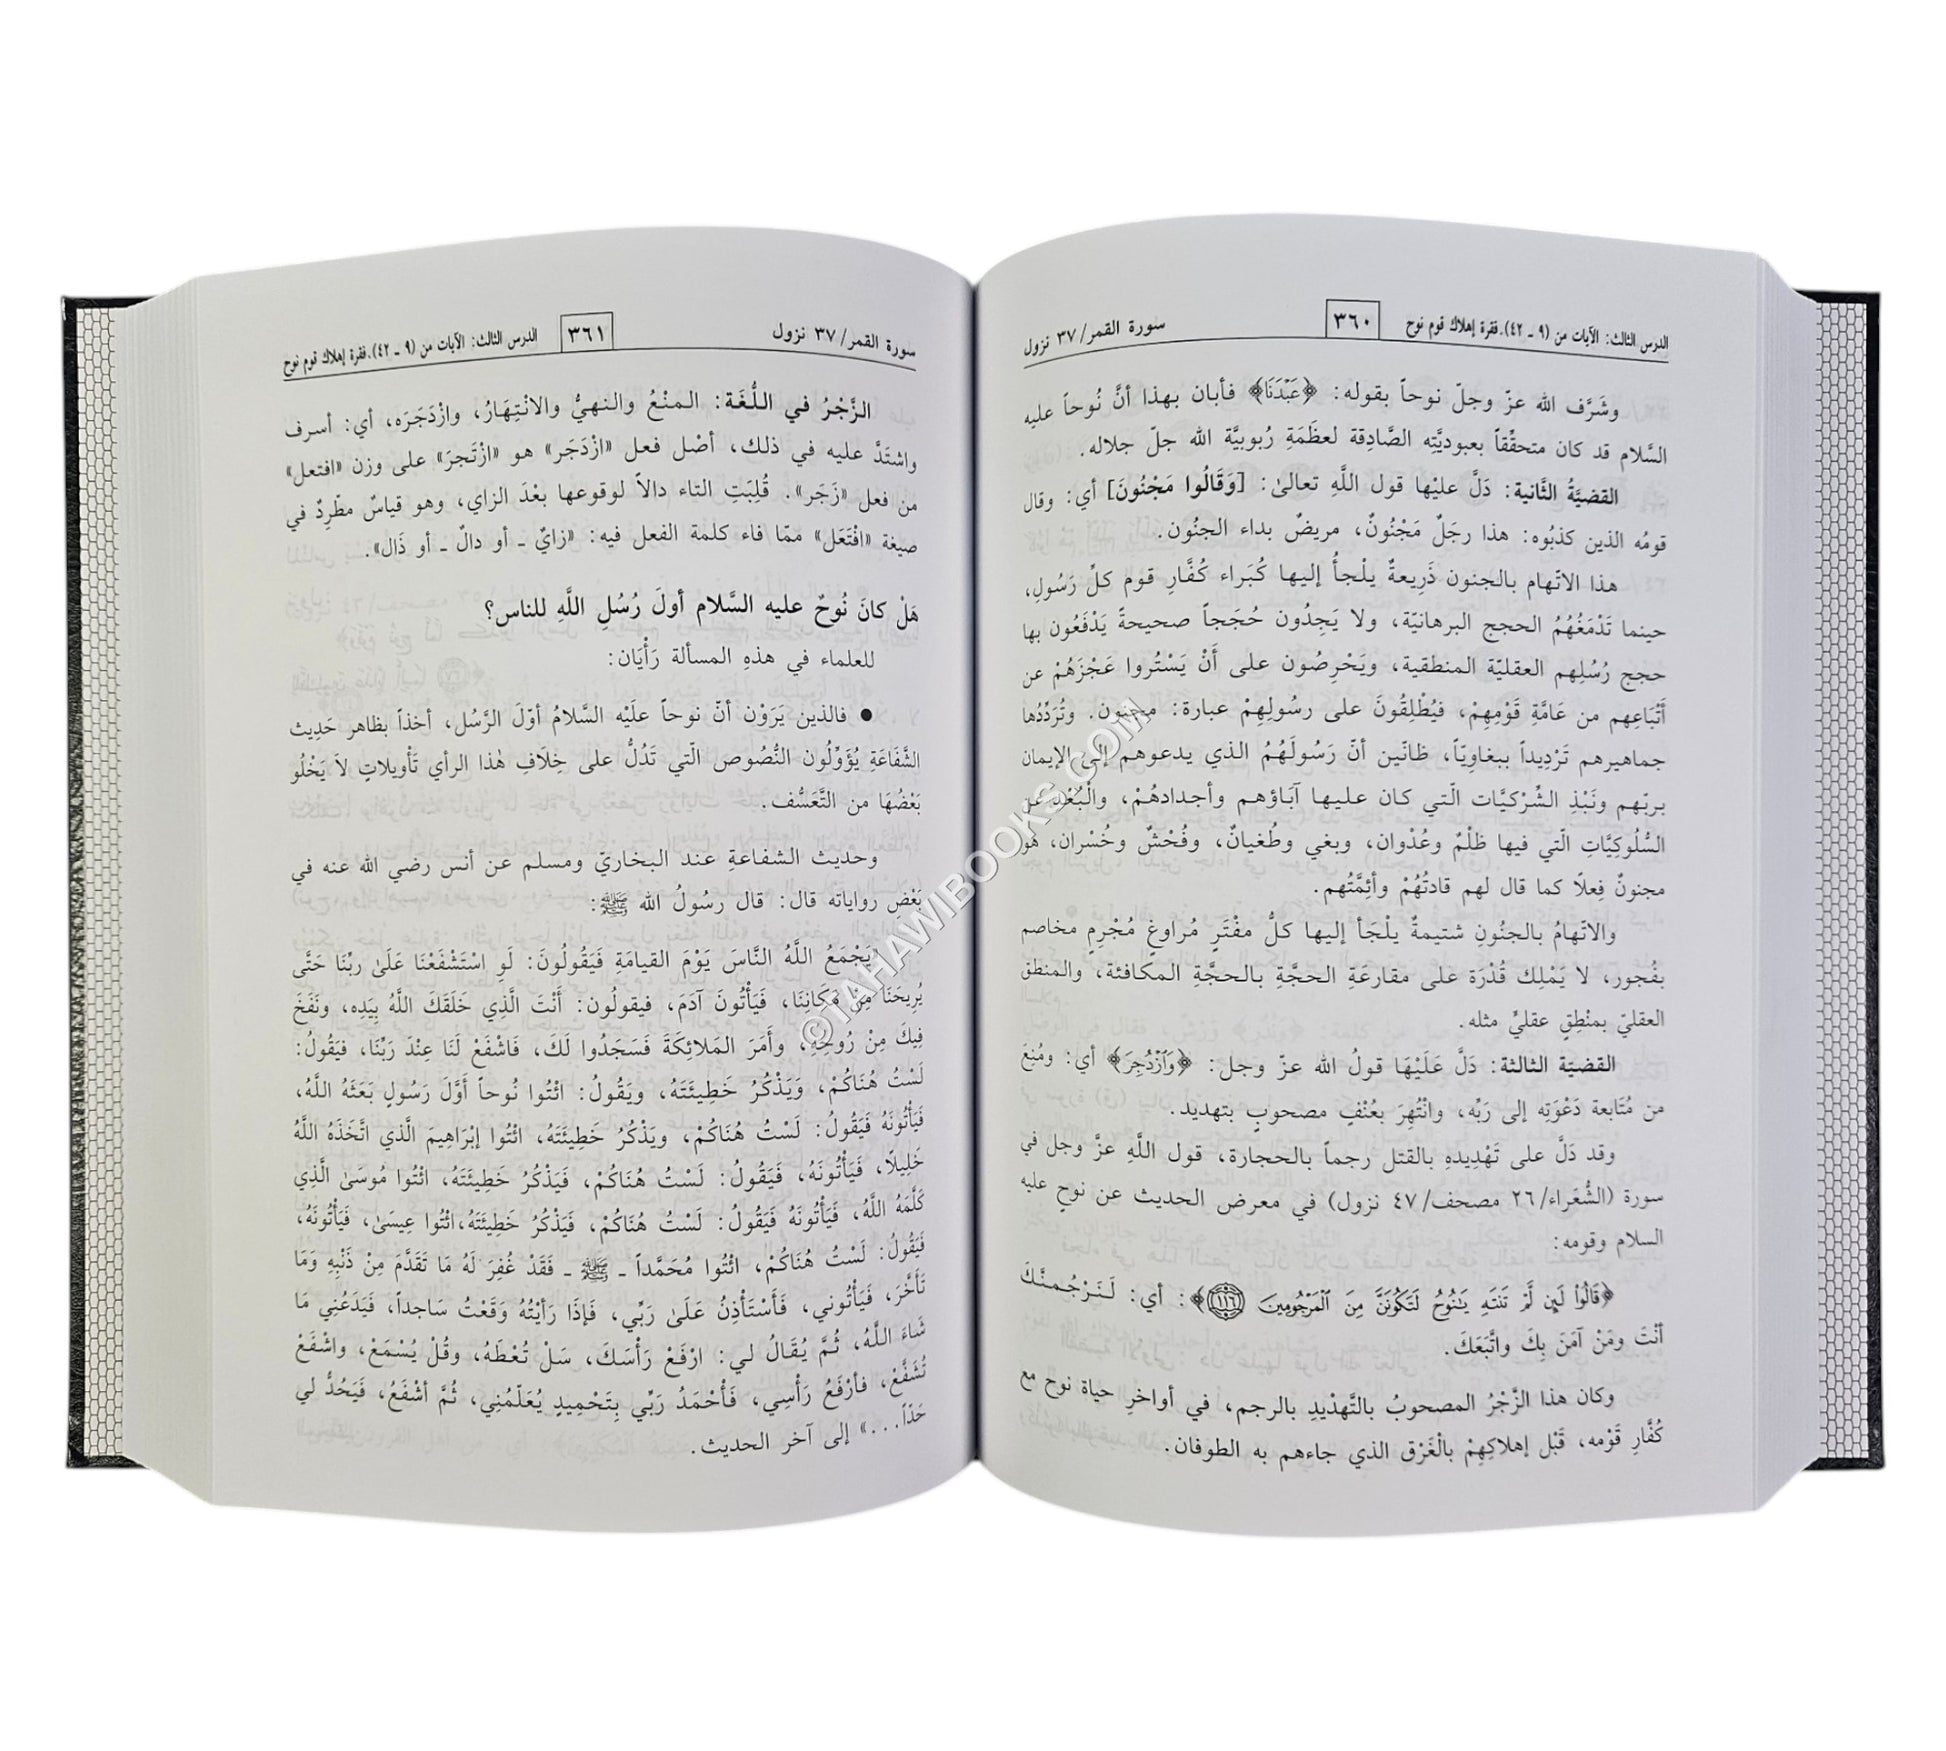 الدرس الثالث: الآيات من (٩ ـ ٤٢). فقرة إهلاك قوم نوح
٣٦٠
سورة القمر/ ٣٧ نزول
وشَرَّف الله عزّ وجلّ نوحاً بقوله: ﴿عَبْدَنَا﴾ فأبان بهذا أنَّ نُوحاً عليه
السَّلام قد كان متحقِّقاً بعبوديَّتِه الصَّادِقة لعظَمَةِ رُبوبيَّة الله جلّ جلاله.
القضيَّةُ الثَّانية: دَلَّ عليْها قول اللَّهِ تعالىٰ: [وَقَالُوا مَجْنُونَ] أي: وقال
قومُه الذين كذبُوه: هذا رجَلٌ مَجْنُونٌ، مريضٌ بداء الجنُون.
هذا الاتّهام بالجنون ذَرِيعةٌ يلْجأُ إليها كُبَراء كُفَّارِ قوم كلِّ رَسُولٍ،
حينما تَدْمَغُهُمُ الحجج البرهانيّة، ولا يَجِدُون حُجَجاً صحيحةً يَدْفَعُون بها
حجج رُسُلِهم العقليّة المنطقية، ويَحْرِصُون على أَنْ يَسْتُروا عَجْزَهُمْ عن
أَتْبَاعِهم من عَامَّةِ قَوْمِهِمْ، فيُطْلِقُونَ على رسُولِهِمْ عبارة: مجنون. وتُرَدِّدُها
جماهيرهم تَرْدِيداً ببغاوِيّاً، ظانّين أنّ رَسُولَهُمُ الذي يدعوهم إلى الإيمان
بربّهم ونَبْذِ الشِّرْكيَّات الّتي كان عليها آبَاؤهم وأجدادهُمْ، والْبُعْدِ عن
السُّلُوكِيَّاتِ الّتي فيها ظلْمٌ وعُدْوان، وبغي وطُغيانٌ، وفُحْشٌ وخُسْران، هُو
مجنونٌ فِعلًا كما قال لهم قادتُهُمْ وأئِمَّتُهم.
والاتّهامُ بالجنُونِ شتيمةٌ يلْجَأ إليها كلُّ مفْتَرٍ مُراوغٍ مُجْرِمٍ مخاصم
بفُجور، لا يَمْلِك قُدْرَة على مقارعَةِ الحجَّةِ بالحجَّةِ المكافئة، والمنطق
العقليّ بمنْطِقٍ عقليٍّ مثله.
القضيّة الثالثة: دَلَّ عَلَيْهَا قولُ الله عزّ وجل: ﴿وَٱزْدُجِرَ﴾ أي: ومُنِعَ
من مُتَابعة دَعْوَتِه إلى رَبِّه، وانْتُهِرَ بعُنْفٍ مصحوبٍ بتهديد.
وقد دَلَّ على تَهْدِيدهِ بالقتل رجماً بالحجارة، قول اللَّهِ عزَّ وجل في
سورة (الشُّعَراء/ ٢٦ مصحف/ ٤٧ نزول) في معرض الحديث عن نوحٍ عليه
السلام وقومه:
﴿قَالُوا۟ لَئِن لَّمْ تَنتَهِ يَٰنُوحُ لَتَكُونَنَّ مِنَ ٱلْمَرْجُومِينَ ١١٦﴾: أي: لَنَرْجُمنَّكَ
أنْتَ ومَنْ آمَنَ بِكَ واتَّبَعَكَ.
وكان هذا الزّجْرُ المصحوبُ بالتَّهْدْيدِ بالرجم، في أواخرِ حياة نوح مع
كُفَّارِ قَوْمه، قَبْل إهلاكِهِمْ بالْغَرْق الذي جاءهم به الطوفان.
سورة القمر/ ٣٧ نزول
٣٦١
الدرس الثالث: الآيات من (٩ ـ ٤٢). فقرة إهلاك قوم نوح
الزَّجْرُ في اللُّغَة: المنْعُ والنهيُّ والانْتِهَارُ، وازْدَجَرَه، أي: أسرف
واشتَدَّ عليه في ذلك، أصْل فعل «ازْدَجَر» هو «ازْتَجرَ» على وزن «افتعل»
من فعل «زَجَر». قُلِبَتِ التاء دالاً لوقوعها بعْدَ الزاي، وهو قياسٌ مطّرِدٌ في
صيغة «افْتَعَل» ممّا فاء كلمة الفعل فيه: «زايٌ ـ أو دالٌ ـ أو ذَال».
هَلْ كانَ نُوحٌ عليه السَّلام أولَ رُسُلِ اللَّهِ للناس؟
للعلماء في هذهِ المسألة رَأْيَان:
● فالذين يَرَوْن أنّ نوحاً علَيْه السَّلامُ أوّلَ الرَّسُل، أخذاً بظاهر حَدِيث
الشَّفَاعَةِ يُؤَوِّلُون النُّصُوص الّتي تَدُلُّ على خِلَافِ هٰذا الرأي تَأْويلاتٍ لاَ يَخْلُو
بَعْضُهَا من التَّعَسُّف.
وحديث الشفاعةِ عند البخاريّ ومسلم عن أنس رضي الله عنه في
بَعْضِ رواياته قال: قال رسُولُ الله ﷺ:
«يَجْمَعُ اللَّهُ النَّاسَ يَوْمَ القيامَةِ فَيَقُولُونَ: لَوِ اسْتَشْفَعْنَا عَلَىٰ ربِّنَا حَتَّى
يُرِيحَنَا مِنْ مَكَانِنَا، فَيَأْتُونَ آدَمَ، فيقولُون: أَنْتَ الَّذِي خَلَقَكَ اللَّهُ بِيَدِه، ونَفَخَ
فِيكَ مِنْ رُوحِهِ، وأَمَرَ المَلائِكَةَ فَسَجَدُوا لَكَ، فَاشْفَعْ لَنَا عِنْدَ رَبِّنَا، فيَقُولُ:
لَسْتُ هُنَاكُمْ، وَيَذْكُرُ خَطِيئَتَهُ، ويَقُولُ: ائْتُوا نُوحاً أَوَّلَ رَسُولٍ بَعَثَهُ اللَّهُ،
فَيَأْتُونَهُ فَيَقُولُ: لَسْتُ هُنَاكُمْ، ويَذْكُرُ خَطِيئَتَهُ، ائْتُوا إبْرَاهِيمَ الَّذي اتَّخَذَهُ اللَّهُ
خَلِيلًا، فَيَأْتُونَهُ، فَيَقُولُ: لَسْتُ هُنَاكُمْ، فَيَذْكُرُ خَطِيئَتَهُ، ائْتُوا مُوسَىٰ الَّذِي
كَلَّمَهُ اللَّهُ، فَيَأْتُونَهُ فَيَقُولُ: لَسْتُ هُنَاكُمْ، فَيَذْكُرُ خَطِيئَتَهُ،ائْتُوا عِيسَىٰ، فَيَأْتُونَهُ،
فَيَقُولُ: لَسْتُ هُنَاكُمْ، ائْتُوا مُحَمَّداً ـ ﷺ ـ فَقَدْ غُفِرَ لَهُ مَا تَقَدَّمَ مِنْ ذَنْبِهِ وَمَا
تَأَخَّرَ، فَيَأْتُوني، فَأَسْتَأْذِنُ عَلَىٰ رَبِّي، فَإذَا رَأيْتُهُ وَقَعْتُ سَاجداً، فَيَدَعُنِي مَا
شَاءَ اللَّهُ، ثُمَّ يُقَالُ لي: ارْفَعْ رَأْسَكَ، سَلْ تُعْطَهُ، وقُلْ يُسْمَعْ، واشْفَعْ
تُشَفَّعْ، فأرْفَعُ رَأْسِي، فَأَحْمَدُ رَبِّي بِتَحْمِيدٍ يُعَلّمُنِي، ثُمَّ أَشْفَعُ، فَيَحُدُّ لي
حَدّاً...» إلى آخر الحديث.
©TAHAWIBOOKS.COM